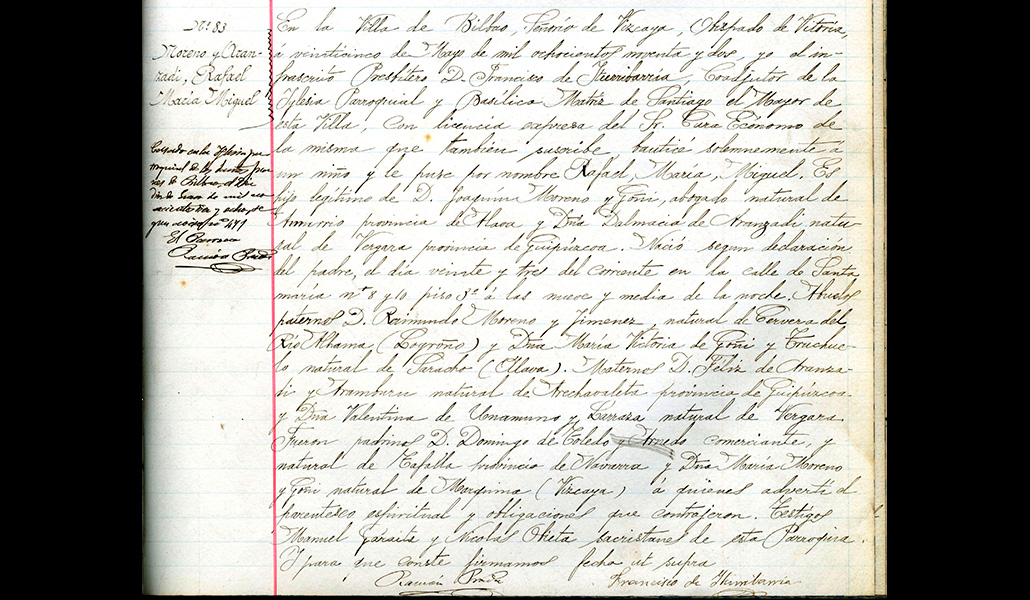 Nº 83
Moreno y Aran-
zadi, Rafael
María Miguel
Casado en la Iglesia pa-
rroquial de los Santos Jua-
nes de Bilbao, el día
de mil no-
vecientos y ocho, se-
gún nº 471
El Párroco
Ramón Prada
En la Villa de Bilbao, Señorío de Vizcaya, Obispado de Vitoria,
á veinticinco de Mayo de mil ochocientos noventa y dos, yo el in-
frascrito Presbítero D. Francisco de Iturribarria, Coadjutor de la
Iglesia Parroquial y Basílica Matriz de Santiago el Mayor de
esta Villa, con licencia expresa del Sr. Cura Ecónomo de
la misma que también suscribe bauticé solemnemente á
un niño y le puse por nombre Rafael, María, Miguel. Es
hijo legítimo de D. Joaquín Moreno y Goñi, abogado natural de
Amurrio provincia de Alava y Dña Dalmacia de Aranzadi natu-
ral de Vergara provincia de Guipúzcoa. Nació segun declaración
del padre, el dia veinte y tres del corriente en la calle de Santa
maría nº 8 y 10 piso 3º á las nueve y media de la noche. Abuelos
paternos D. Raimundo Moreno y Jimenez, natural de Cervera del
Río Alhama (Logroño) y Dña María Victoria de Goñi y Truchue-
lo natural de Saracho (Alava). Maternos D. Féliz de Aranza-
di y Aramburu natural de Arechavaleta provincia de Guipúzcoa
y Dña Valentina de Unamuno y Larraza, natural de Vergara
Fueron padrinos D. Domingo de Toledo y Arnedo comerciante, y
natural de Tafalla provincia de Navarra y Dña María Moreno
y Goñi natural de Marquina (Vizcaya) á quienes advertí el
parentesco espiritual y obligaciones que contrajeron. Testigos
Manuel y Nicolás Obieta sacristanes de esta Parroquia.
Y para que conste firmamos fecha ut supra
Ramón Prada Francisco de Iturribarria